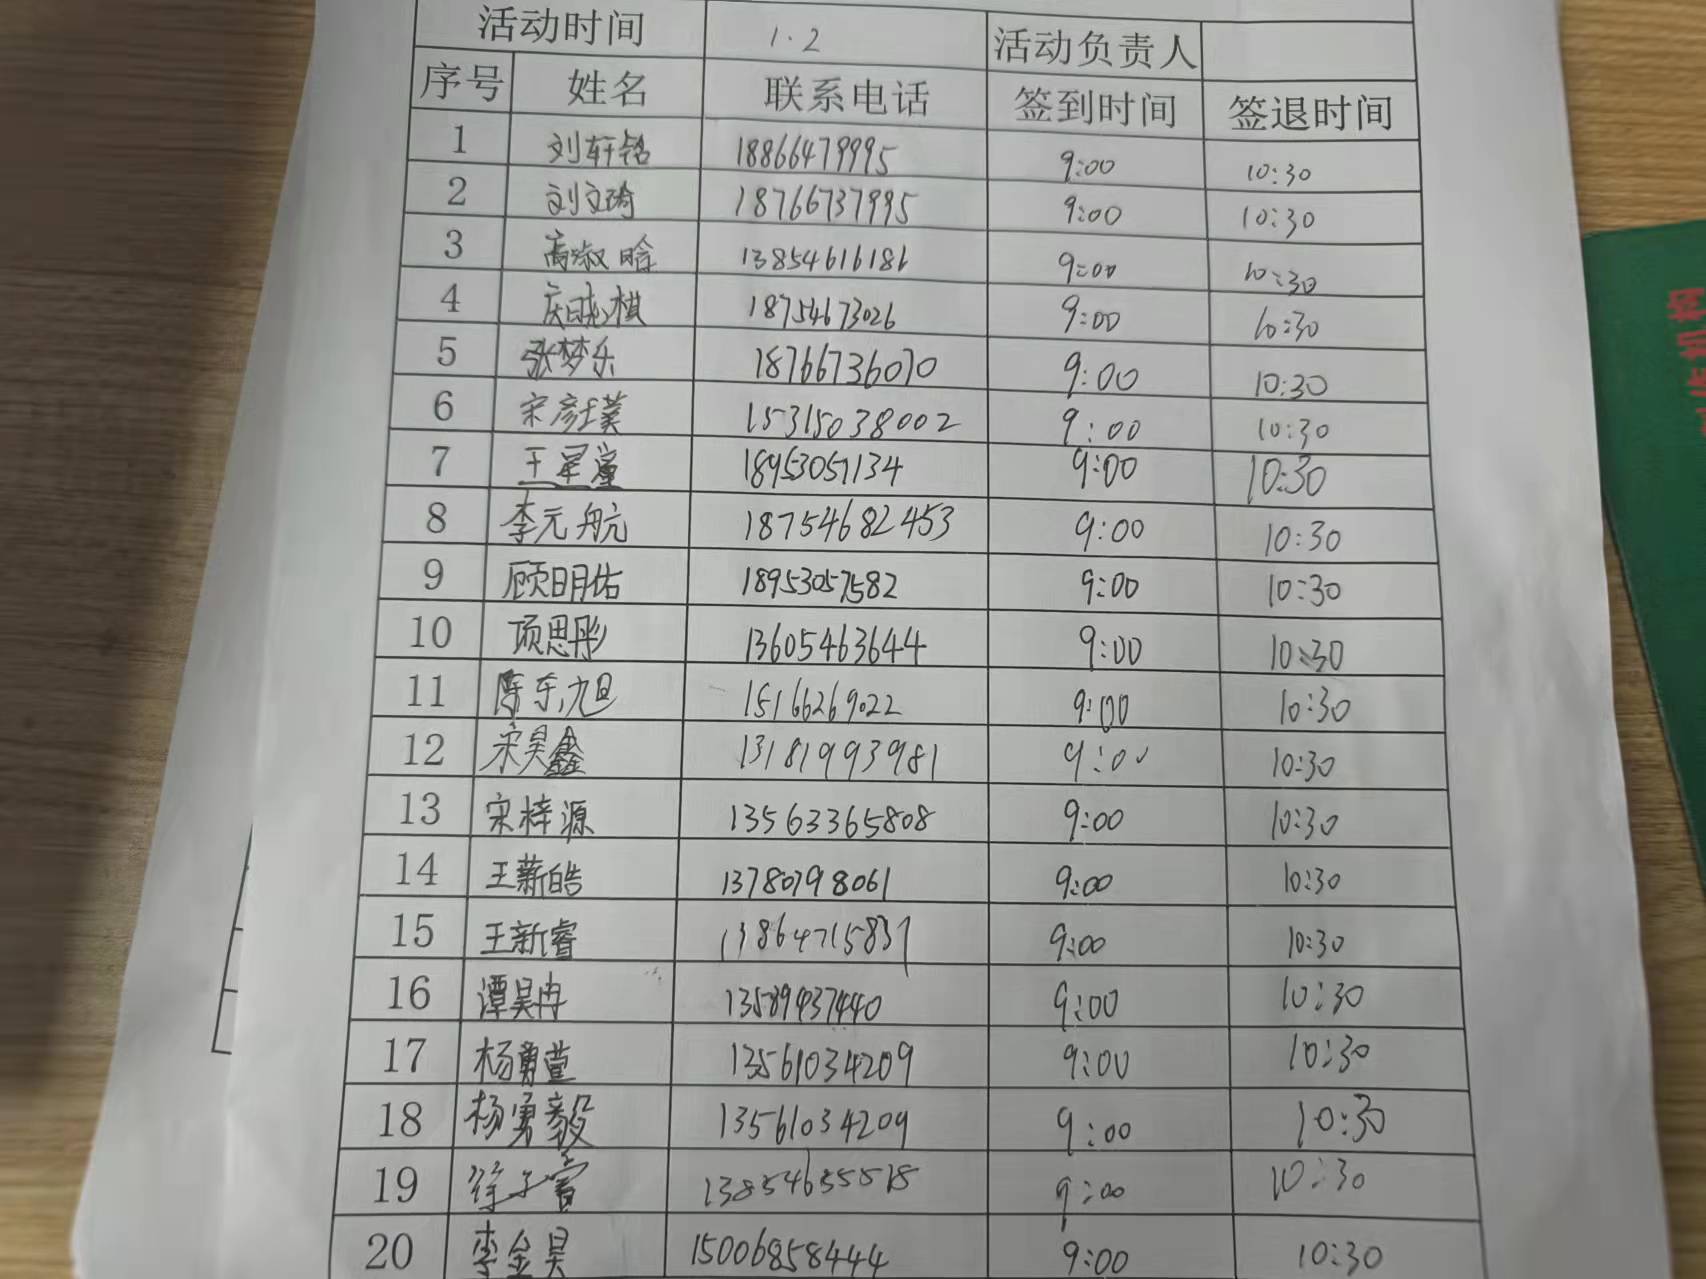 活动时间 1.2 活动负责人
序号 姓名 联系电话 签到时间 签退时间
1 刘轩铭 18866479995 9:00 10:30
2 刘文琦 18766737995 9:00 10:30
3 高淑晗 13854616186 9:00 10:30
4 庆晓棋 18754673026 9:00 10:30
5 张梦乐 18766736070 9:00 10:30
6 宋彦瑾 15315038002 9:00 10:30
7 王星童 18953057134 9:00 10:30
8 李元航 18754682453 9:00 10:30
9 顾明佑 18953057582 9:00 10:30
10 项思彤 13605463644 9:00 10:30
11 陈东旭 15166269022 9:00 10:30
12 宋昊鑫 13181993981 9:00 10:30
13 宋梓源 13563365808 9:00 10:30
14 王薪皓 13780798061 9:00 10:30
15 王新睿 13864715837 9:00 10:30
16 谭昊冉 13589437440 9:00 10:30
17 杨勇萱 13561034209 9:00 10:30
18 杨勇毅 13561034209 9:00 10:30
19 徐子萱 13854635518 9:00 10:30
20 李金昊 15006858444 9:00 10:30
机构